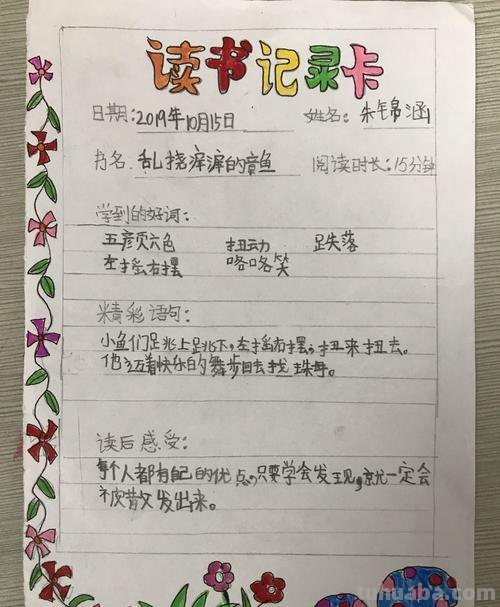 读书记录卡
日期:2019年10月15日 姓名:朱锦涵
书名.乱挠痒痒的章鱼 阅读时长:15分钟
学到的好词:
五彦页六色 扭动 跌落
左摇右摆 咯咯笑
精彩语句:
小鱼们跳上跳下,左摇右摆,扭来扭去。
他迈着快乐的舞步回去找珠母。
读后感受:
每个人都有自己的优点,只要学会发现,就一定会
被散发出来。
tuhuaba.com